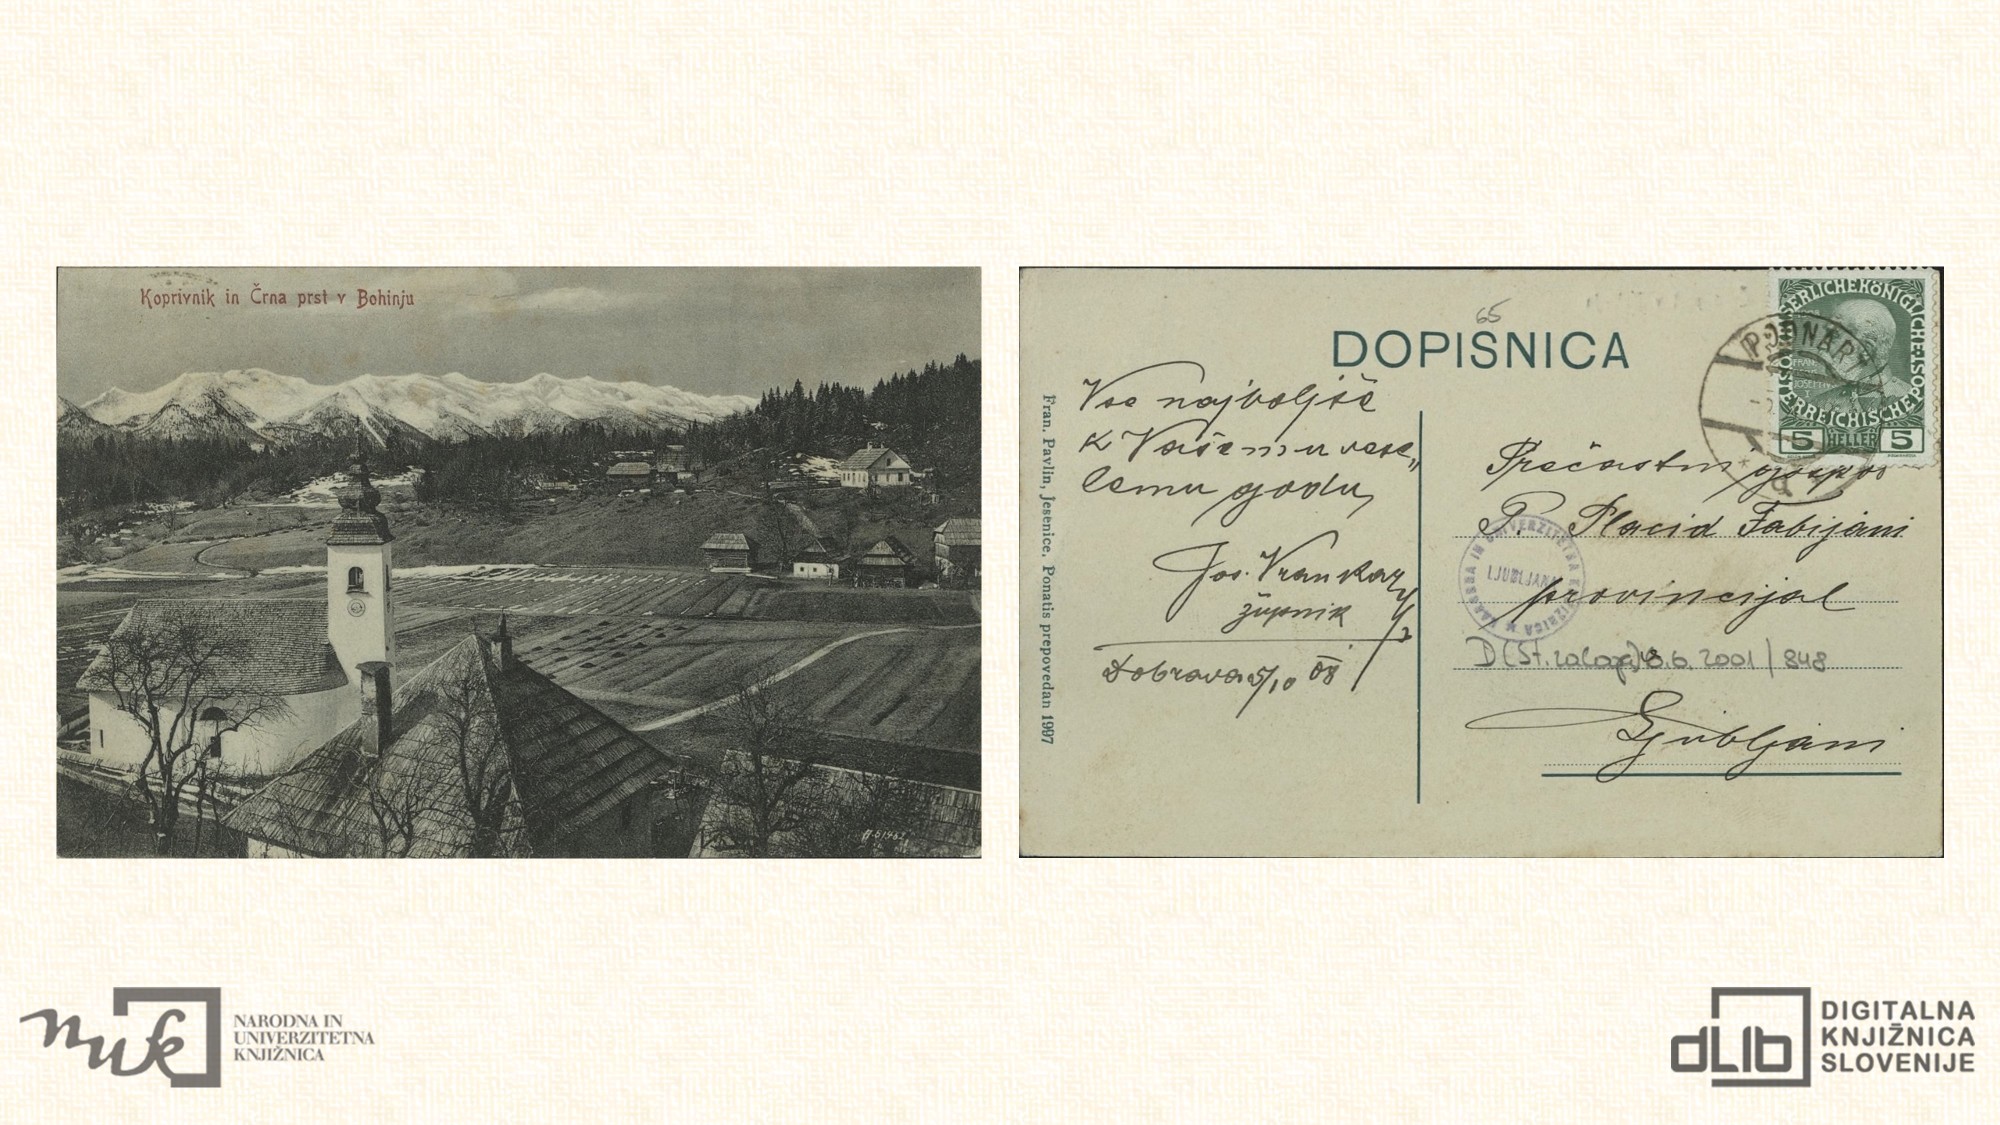 Koprivnik in Črna prst v Bohinju
65
DOPISNICA
Vse najboljše
k Vašemu vese„
lemu godu,
Jos. Vrankar
župnik
Dobrava 5/10 08
Fran. Pavlin, Jesenice. Ponatis prepovedan 1997
KAISERLICHE KÖNIGLICHE ÖSTERREICHISCHE POST
FRANZ
JOSEPH I
5 HELLER 5
PODNART
Prečastni gospod
P. Placid Fabijani
provincijal
NARODNA IN UNIVERZITETNA KNJIŽNICA
LJUBLJANA
D (St. zaloga) 18.6. 2001 / 848
Ljubljani
nuk
NARODNA IN
UNIVERZITETNA
KNJIŽNICA
dLib
DIGITALNA
KNJIŽNICA
SLOVENIJE